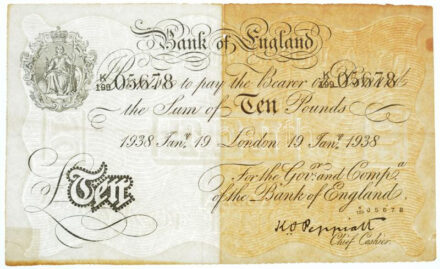 Bank of England
K/199 05678 K/199 05678
to pay the Bearer on
the Sum of Ten Pounds
1938 Janʸ. 19 London 19 Janʸ. 1938
For the Govʳ. and Compᵃ.
£Ten of the Bank of England.
K/199 05678
K O Peppiatt
Chief Cashier.